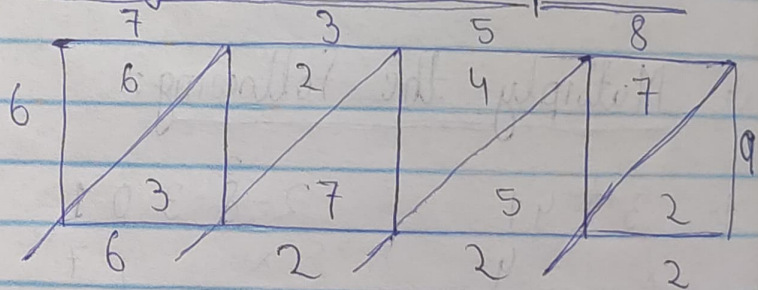 7 3 5 8
6 2 4 7
6 9
3 7 5 2
6 2 2 2